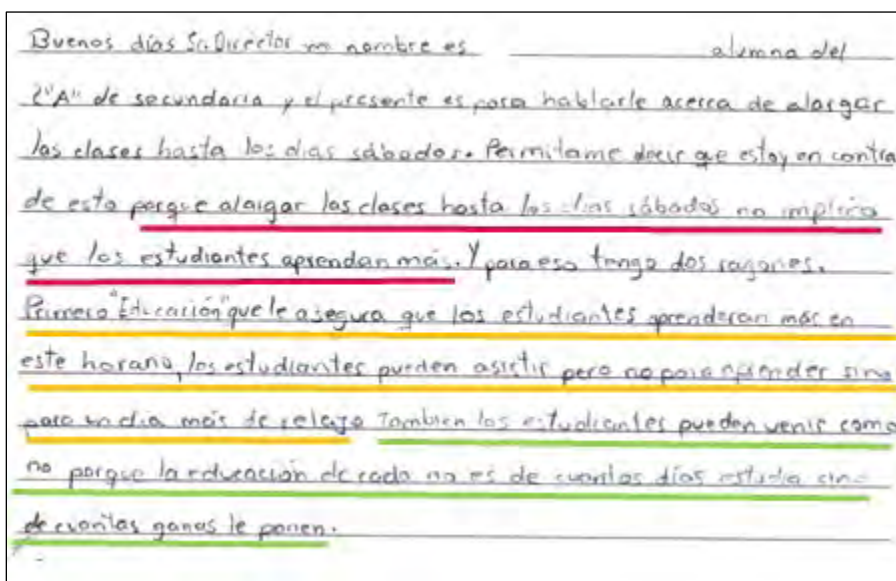 Buenos días Sr. Director mi nombre es alumna del
2"A" de secundaria y el presente es para hablarle acerca de alargar
las clases hasta los dias sábados. Permitame decir que estoy en contra
de esto porque alargar las clases hasta los dias sábados no implica
que los estudiantes aprendan más. Y para eso tengo dos razones.
Primero "Educación" que le asegura que los estudiantes aprenderan más en
este horario, los estudiantes pueden asistir pero no para aprender sino
para un dia más de relajo Tambien los estudiantes pueden venir como
no porque la educación de cada no es de cuantos días estudia sino
de cuantas ganas le ponen.